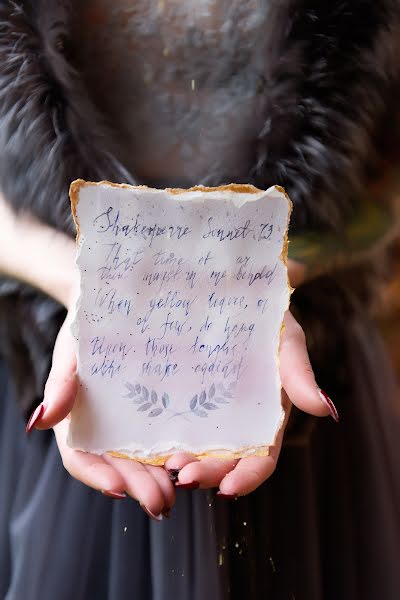 Shakespearre Sonnet 73
That time of
thou mayst in me behold
When yellow leaves, or
or few, do hang
Upon those boughs
which shake against